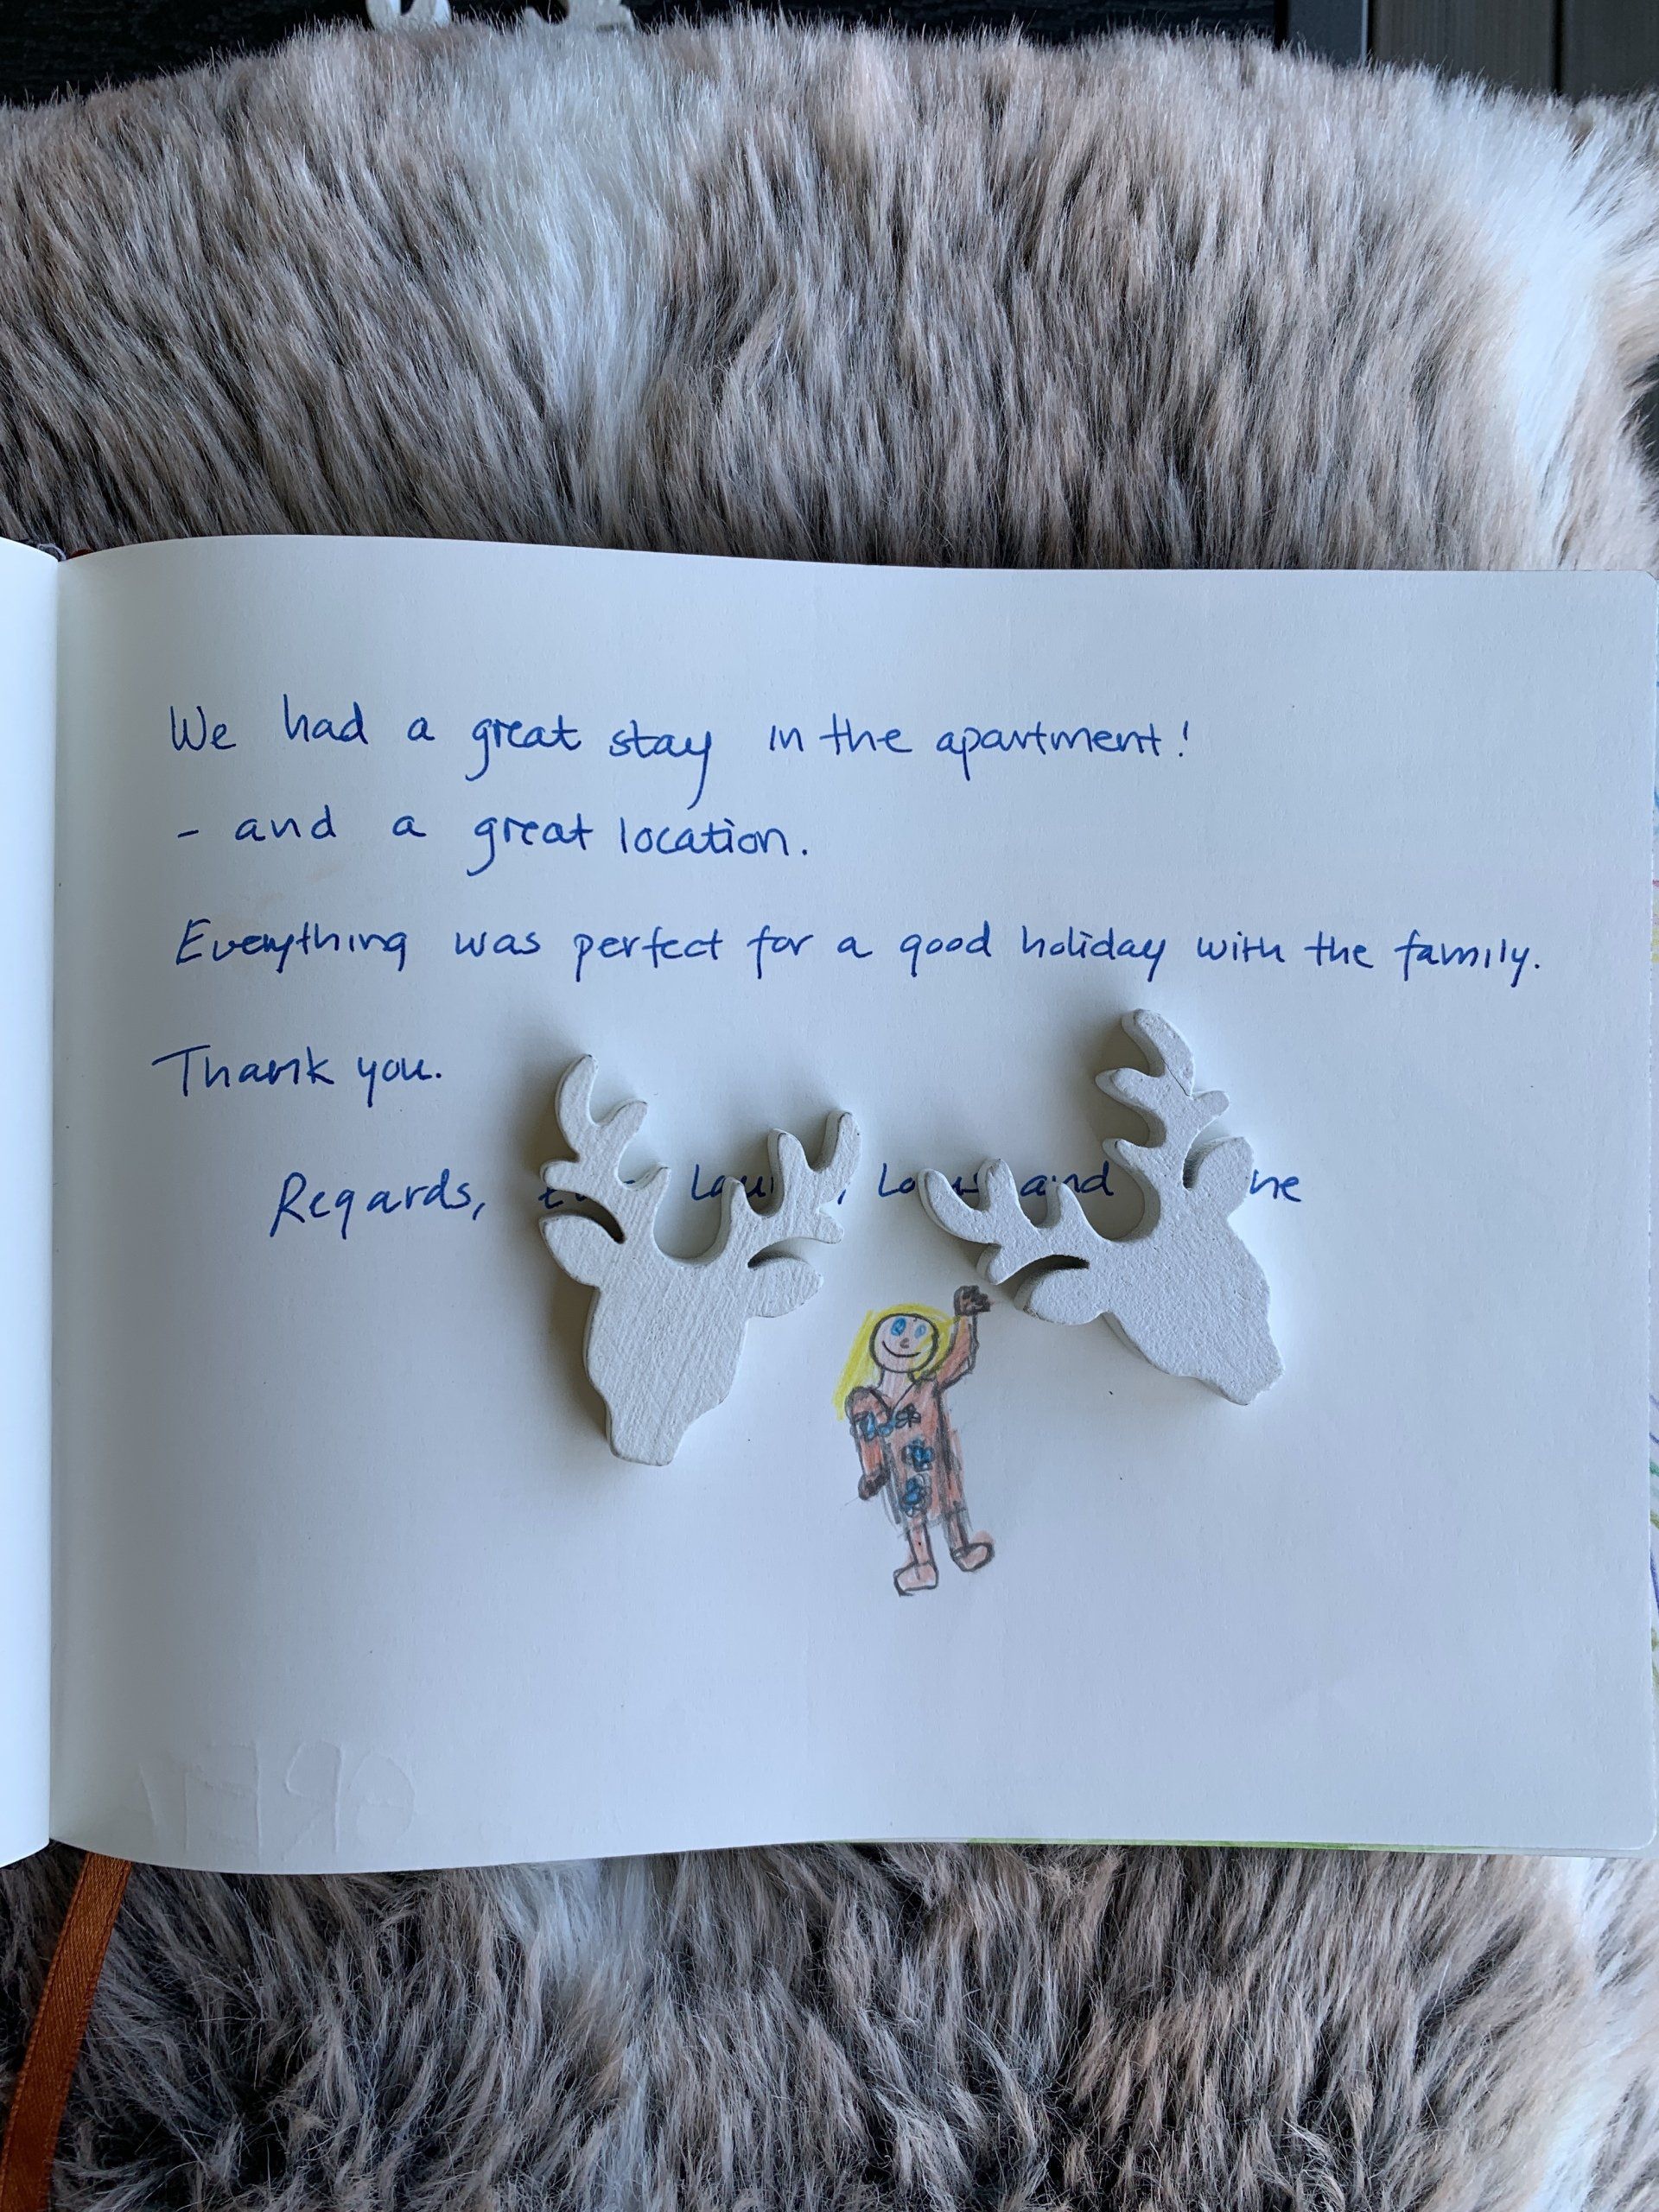 We had a great stay in the apartment!
- and a great location.
Everything was perfect for a good holiday with the family.
Thank you.
Regards, and